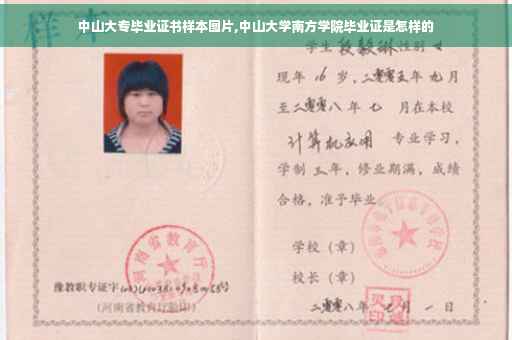 中山大专毕业证书样本图片,中山大学南方学院毕业证是怎样的
样本
学生 段毅琳 性别 女
现年 16 岁,二零零五年 九月
至二零零八年 七 月在本校
计算机应用 专业学习,
学制 三年,修业期满,成绩
合格,准予毕业
学校(章)
校长(章)
二零零八年 月 一 日
河南省教育厅
豫教职专证字
(河南省教育厅验印)